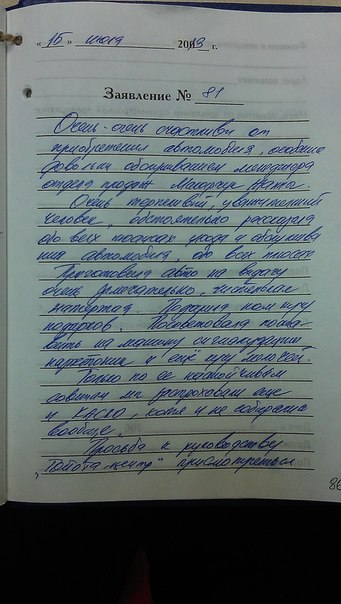 "15" июля 2013 г.
Заявление № 81
Очень-очень счастливы от
приобретения автомобиля, особенно
довольны обслуживанием менеджера
отдела продаж
Очень терпеливый, уважительный
человек, обстоятельно рассказала
обо всех нюансах ухода и обслужива
ния автомобиля, обо всех плюсах
Приготовила авто на выдачу
очень замечательно,
Подарила нам кучу
подарков. Посоветовала поста-
вить на машину сигнализацию
и ещё кучу мелочей.
Только по ее настойчивым
советам мы застраховали еще
и КАСКО, хотя и не собирались
вообще.
Просьба к руководству
"Тойота-центр" присмотреться
86